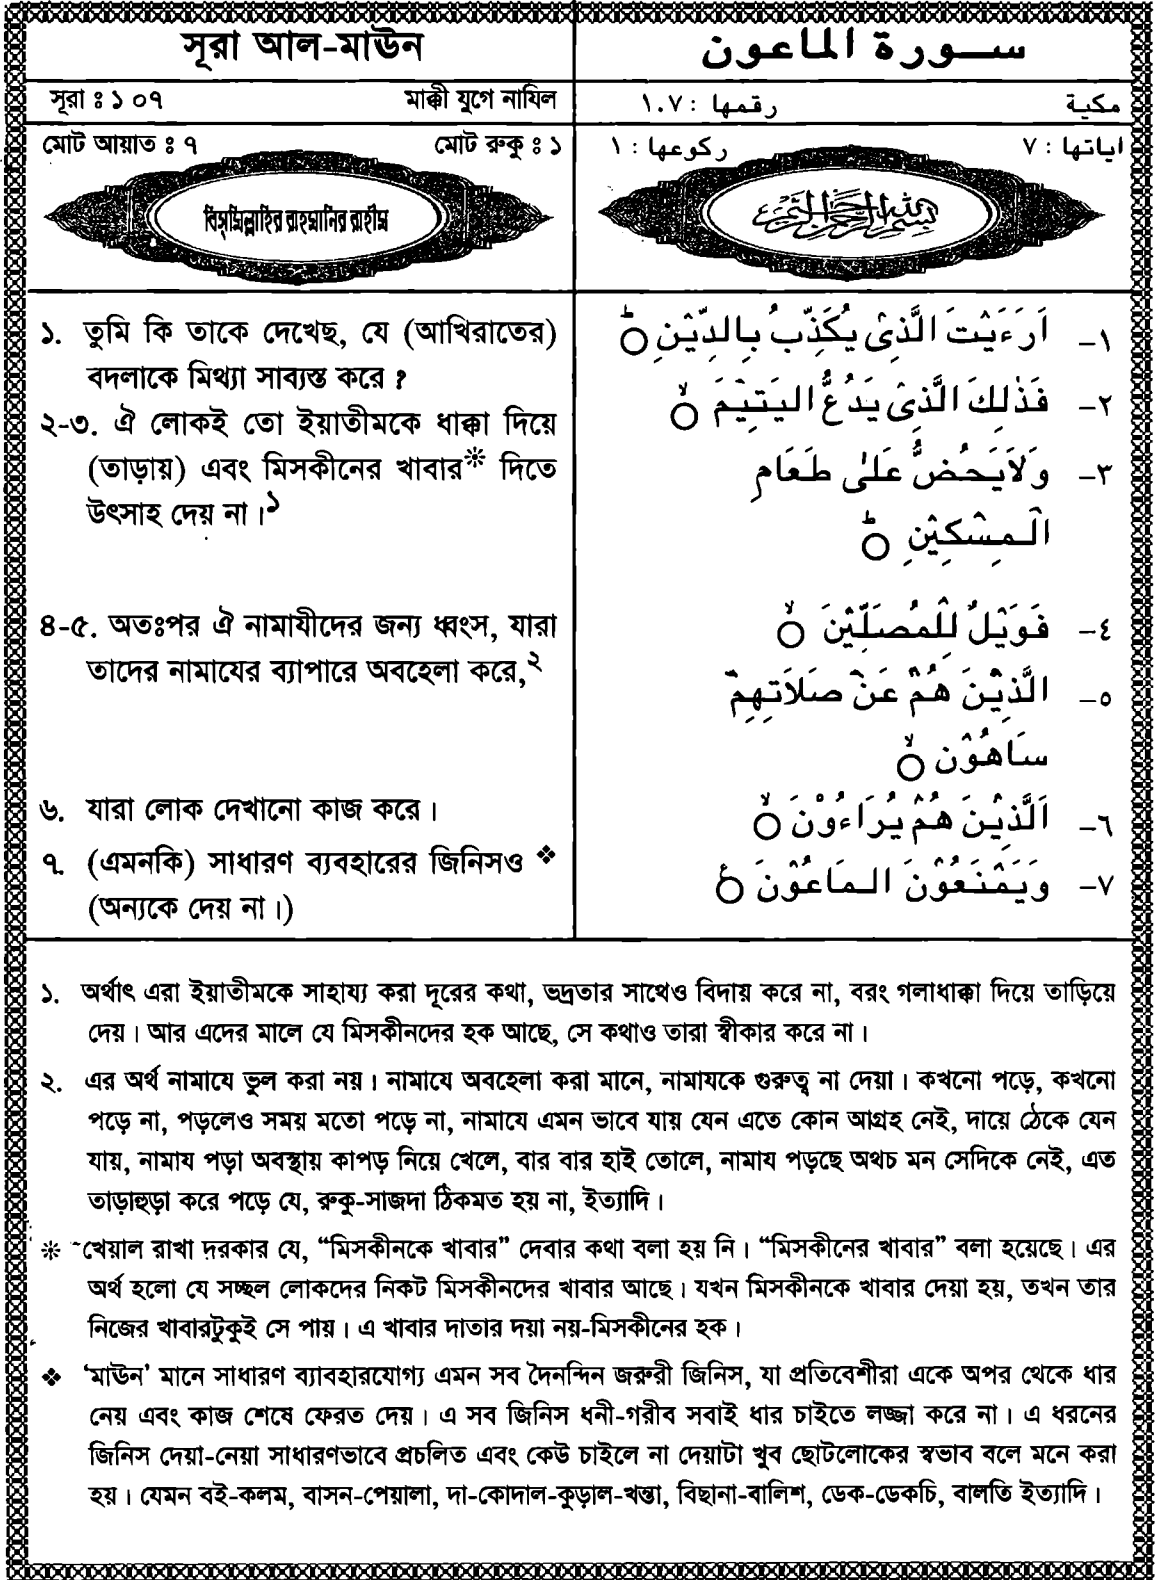 সূরা আল-মাঊন
সূরা ঃ ১০৭ মাক্কী যুগে নাযিল
মোট আয়াত ঃ ৭ মোট রুকু ঃ ১
বিস্‌মিল্লাহির রাহমানির রাহীম
১. তুমি কি তাকে দেখেছ, যে (আখিরাতের)
বদলাকে মিথ্যা সাব্যস্ত করে ?
২-৩. ঐ লোকই তো ইয়াতীমকে ধাক্কা দিয়ে
(তাড়ায়) এবং মিসকীনের খাবার❊ দিতে
উৎসাহ দেয় না।১
৪-৫. অতঃপর ঐ নামাযীদের জন্য ধ্বংস, যারা
তাদের নামাযের ব্যাপারে অবহেলা করে,২
৬. যারা লোক দেখানো কাজ করে।
৭. (এমনকি) সাধারণ ব্যবহারের জিনিসও ❖
(অন্যকে দেয় না।)
سورة الماعون
مكية رقمها : ١٠٧
اياتها : ٧ ركوعها : ١
بسم الله الرحمن الرحيم
١- اَرَءَيْتَ الَّذِىْ يُكَذِّبُ بِالدِّيْنِ ۝ؕ
٢- فَذٰلِكَ الَّذِىْ يَدُعُّ الْيَتِيْمَ ۝ۙ
٣- وَلَايَحُضُّ عَلٰى طَعَامِ
الْمِسْكِيْنِ ۝ؕ
٤- فَوَيْلٌ لِّلْمُصَلِّيْنَ ۝ۙ
٥- الَّذِيْنَ هُمْ عَنْ صَلَاتِهِمْ
سَاهُوْنَ ۝ۙ
٦- اَلَّذِيْنَ هُمْ يُرَاءُوْنَ ۝ۙ
٧- وَيَمْنَعُوْنَ الْمَاعُوْنَ ۝ع
১. অর্থাৎ এরা ইয়াতীমকে সাহায্য করা দূরের কথা, ভদ্রতার সাথেও বিদায় করে না, বরং গলাধাক্কা দিয়ে তাড়িয়ে
দেয়। আর এদের মালে যে মিসকীনদের হক আছে, সে কথাও তারা স্বীকার করে না।
২. এর অর্থ নামাযে ভুল করা নয়। নামাযে অবহেলা করা মানে, নামাযকে গুরুত্ব না দেয়া। কখনো পড়ে, কখনো
পড়ে না, পড়লেও সময় মতো পড়ে না, নামাযে এমন ভাবে যায় যেন এতে কোন আগ্রহ নেই, দায়ে ঠেকে যেন
যায়, নামায পড়া অবস্থায় কাপড় নিয়ে খেলে, বার বার হাই তোলে, নামায পড়ছে অথচ মন সেদিকে নেই, এত
তাড়াহুড়া করে পড়ে যে, রুকু-সাজদা ঠিকমত হয় না, ইত্যাদি।
❊ খেয়াল রাখা দরকার যে, “মিসকীনকে খাবার” দেবার কথা বলা হয় নি। “মিসকীনের খাবার” বলা হয়েছে। এর
অর্থ হলো যে সচ্ছল লোকদের নিকট মিসকীনদের খাবার আছে। যখন মিসকীনকে খাবার দেয়া হয়, তখন তার
নিজের খাবারটুকুই সে পায়। এ খাবার দাতার দয়া নয়-মিসকীনের হক।
❖ ‘মাঊন’ মানে সাধারণ ব্যাবহারযোগ্য এমন সব দৈনন্দিন জরুরী জিনিস, যা প্রতিবেশীরা একে অপর থেকে ধার
নেয় এবং কাজ শেষে ফেরত দেয়। এ সব জিনিস ধনী-গরীব সবাই ধার চাইতে লজ্জা করে না। এ ধরনের
জিনিস দেয়া-নেয়া সাধারণভাবে প্রচলিত এবং কেউ চাইলে না দেয়াটা খুব ছোটলোকের স্বভাব বলে মনে করা
হয়। যেমন বই-কলম, বাসন-পেয়ালা, দা-কোদাল-কুড়াল-খন্তা, বিছানা-বালিশ, ডেক-ডেকচি, বালতি ইত্যাদি।